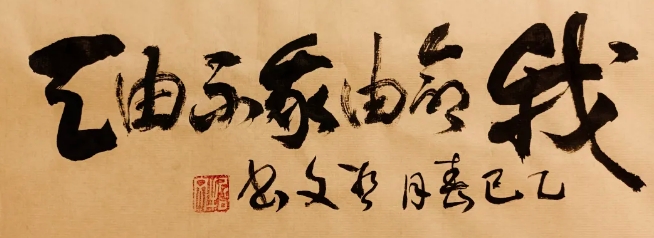 我命由我不由天
乙巳春月文书